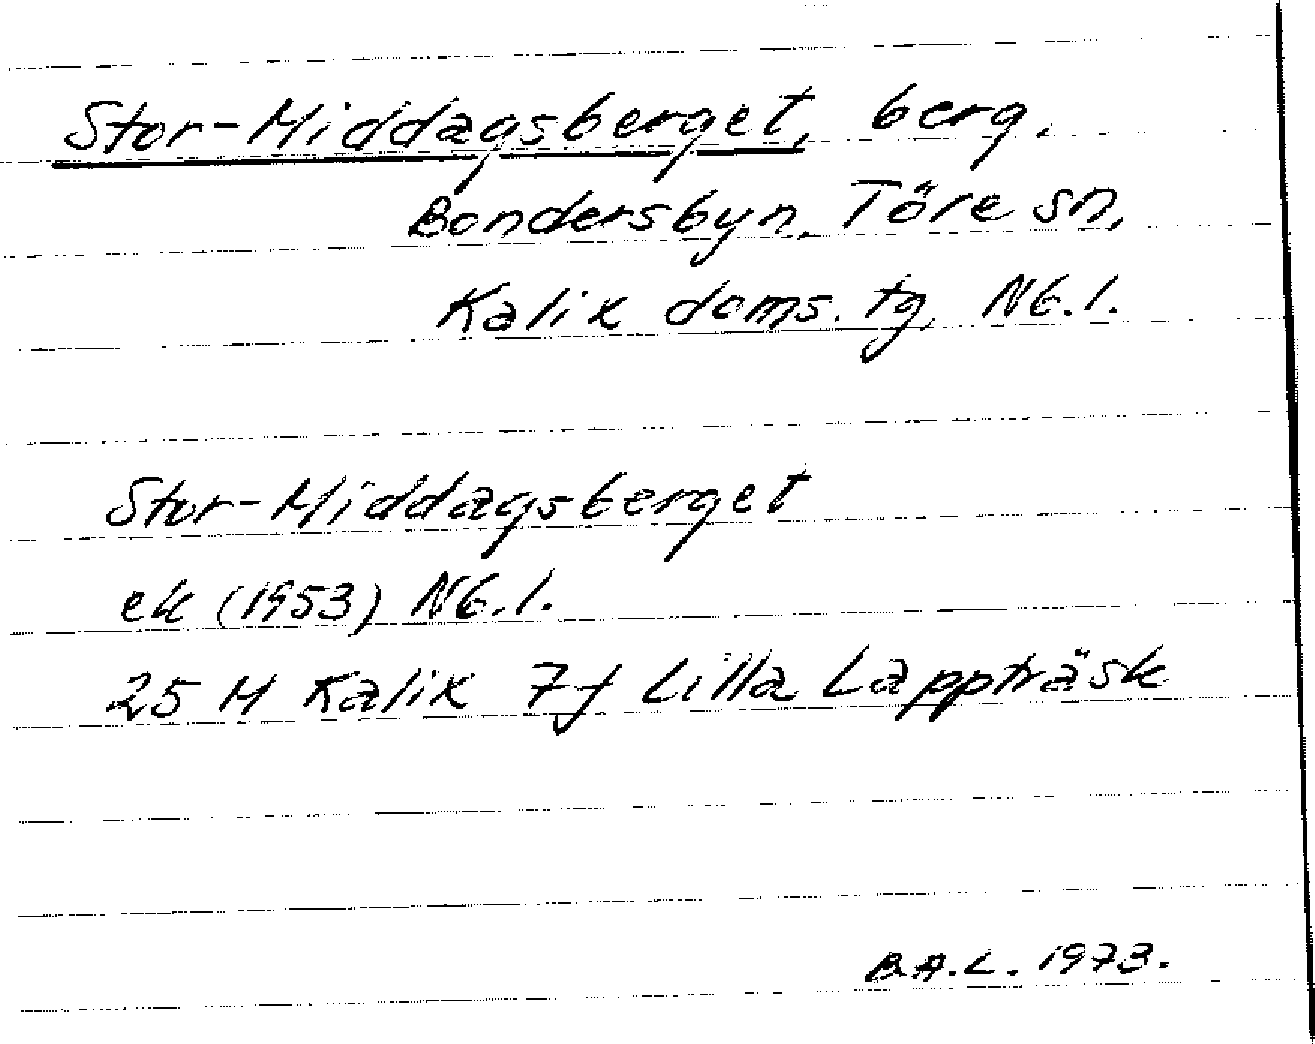 Stor-Middagsberget, berg.
Bondersbyn, Töre sn,
Kalix doms. tg, Nb.l.
Stor-Middagsberget
ek (1953) Nb.l.
25 M Kalix 7j Lilla Lappträsk
B.A.L. 1973.